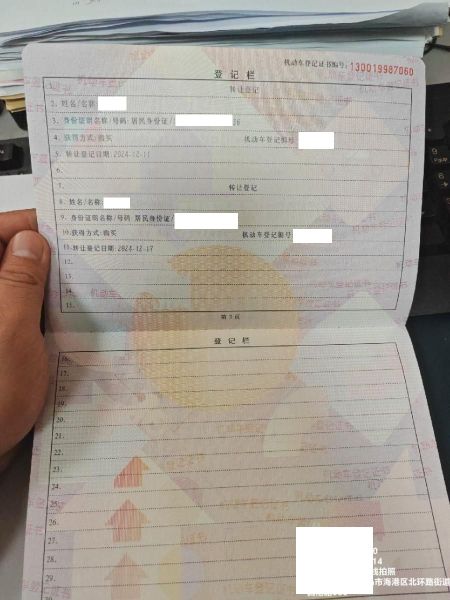 机动车登记证书编号: 130019987060
登记栏
1. 转让登记
2. 姓名/名称:
3. 身份证明名称/号码: 居民身份证/ 26
4. 获得方式: 购买 机动车登记编号:
5. 转让登记日期: 2024-12-11
6.
7. 转让登记
8. 姓名/名称:
9. 身份证明名称/号码: 居民身份证/
10. 获得方式: 购买 机动车登记编号:
11. 转让登记日期: 2024-12-17
12.
13.
14.
15.
第3页
登记栏
16.
17.
18.
19.
20.
21.
22.
23.
24.
25.
26.
27.
28.
29.
30.
0
14
线拍照
市海港区北环路街道